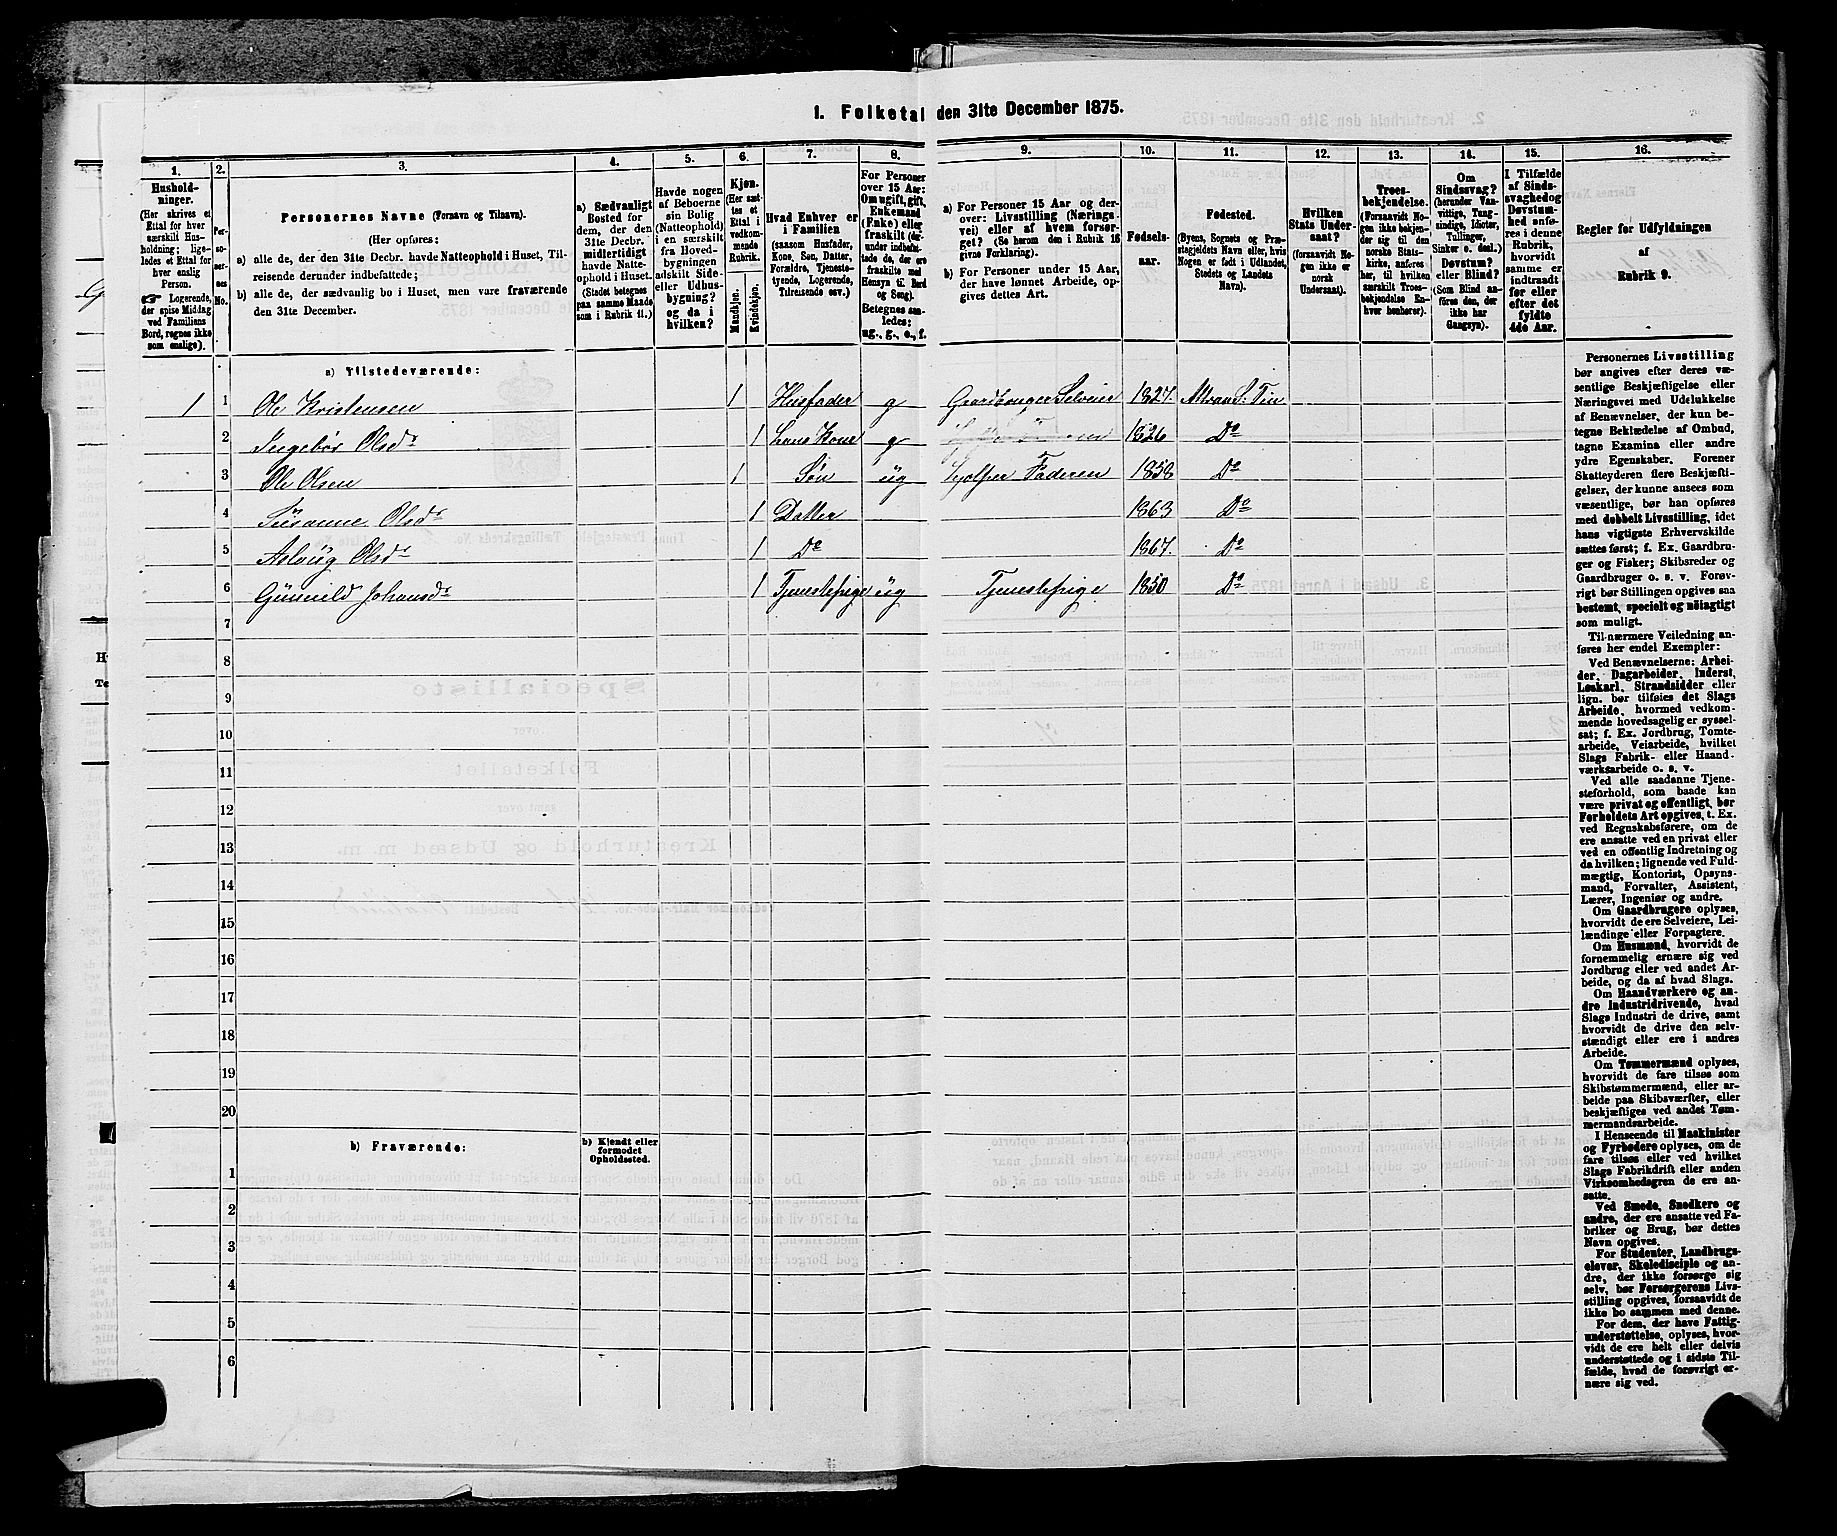 1. Folketal den 31te December 1875.
1. 2. 3. 4. 5. 6. 7. 8. 9. 10. 11. 12. 13. 14. 15. 16.
Hushold-
ninger.
(Her skrives et
Ettal for hver
særskilt Hus-
holdning; lige-
ledes et Ettal for
hver enslig
Person.
☞ Logerende,
der spise Middag
ved Familiens
Bord, regnes ikke
som enslige).
Per-
so-
ner-
nes
No.
Personernes Navne (Fornavn og Tilnavn).
(Her opføres:
a) alle de, der den 31te Decbr. havde Natteophold i Huset, Til-
reisende derunder indbefattede;
b) alle de, der sædvanlig bo i Huset, men vare fraværende
den 31te December.
a) Sædvanligt
Bosted for
dem, der den
31te Decbr.
midlertidigt
havde Natte-
ophold i Huset.
(Stedet betegnes
paa samme Maade
som i Rubrik 11.)
Havde nogen
af Beboerne
sin Bolig
(Natteophold)
i en særskilt
fra Hoved-
bygningen
adskilt Side-
eller Udhus-
bygning?
og da i
hvilken?
Kjøn.
(Her sæt-
tes et
Ettal i
vedkom-
mende
Rubrik.
Mandkjøn.
Kvindekjøn.
Hvad Enhver er
i Familien
(saasom Husfader,
Kone, Søn, Datter,
Forældre, Tjeneste-
tyende, Logerende,
Tilreisende osv.)
For Personer
over 15 Aar:
Om ugift, gift,
Enkemand
(Enke) eller
fraskilt (her-
under indbefat-
tede de, der ere
fraskilte med
Hensyn til Bord
og Seng).
Betegnes saa-
ledes:
ug., g., e., f.
a) For Personer 15 Aar og der-
over: Livsstilling (Nærings-
vei) eller af hvem forsør-
get? (Se herom den i Rubrik 16
givne Forklaring).
b) For Personer under 15 Aar,
der have lønnet Arbeide, op-
gives dettes Art.
Fødsels-
aar.
Fødested.
(Byens, Sognets og Præ-
stegjeldets Navn, eller, hvis
Nogen er født i Udlandet,
Stedets og Landets
Navn).
Hvilken
Stats Under-
saat?
(forsaavidt No-
gen ikke er
norsk
Undersaat).
Troes-
bekjendelse.
(Forsaavidt No-
gen ikke bekjen-
der sig til den
norske Stats-
kirke, anføres
her, til hvilken
særskilt Troes-
bekjendelse En-
hver henhører).
Om
Sindssvag?
(herunder Van-
vittige, Tung-
sindige, Idioter,
Tullinger,
Sinker o. desl.)
Døvstum?
eller Blind?
(Som Blind an-
føres den, der
ikke har
Gangsyn).
I Tilfælde
af Sinds-
svaghed og
Døvstum-
hed anfø-
res i denne
Rubrik,
hvorvidt
samme er
indtraadt
før eller
efter det
fyldte
4de Aar.
Regler for Udfyldningen
af
Rubrik 9.
a) Tilstedeværende:
1 1 Ole Kristensen 1 Husfader g Gaardbruger Selveier 1827. Atraa S: Tin
2 Ingebør Olsdr 1 hans Kone g 1826 Do
3 Ole Olsen 1 Søn ug hjelper Faderen 1858 Do
4 Susanne Olsdr 1 Datter 1863 Do
5 Aslaug Olsdr 1 Do 1867. Do
6 Gunnild Johansdr 1 Tjenestepige ug Tjenestepige 1850 Do
7
8
9
10
11
12
13
14
15
16
17
18
19
20
b) Fraværende:
b) Kjendt eller
formodet
Opholdssted.
1
2
3
4
5
6
Personernes Livsstilling
bør angives efter deres væ-
sentlige Beskjæftigelse eller
Næringsvei med Udelukkelse
af Benævnelser, der kun be-
tegne Beklædelse af Ombud,
tagne Examina eller andre
ydre Egenskaber. Forener
Skatteyderen flere Beskjæfti-
gelser, der kunne ansees som
væsentlige, bør han opføres
med dobbelt Livsstilling, idet
hans vigtigste Erhvervskilde
sættes først; f. Ex. Gaardbru-
ger og Fisker; Skibsreder og
Gaardbruger o. s. v. Forøv-
rigt bør Stillingen opgives saa
bestemt, specielt og nöiagtigt
som muligt.
Til nærmere Veiledning an-
føres her endel Exempler:
Ved Benævnelserne: Arbei-
der, Dagarbeider, Inderst,
Løskarl, Strandsidder eller
lign. bør tilføies det Slags
Arbeide, hvormed vedkom-
mende hovedsagelig er syssel-
sat; f. Ex. Jordbrug, Tomte-
arbeide, Veiarbeide, hvilket
Slags Fabrik- eller Haand-
værksarbeide o. s. v.
Ved alle saadanne Tjene-
steforhold, som baade kan
være privat og offentligt, bør
Forholdets Art opgives, t. Ex.
ved Regnskabsførere, om de
ere ansatte ved en privat eller
ved en offentlig Indretning og
da hvilken; lignende ved Fuld-
mægtig, Kontorist, Opsyns-
mand, Forvalter, Assistent,
Lærer, Ingeniør og andre.
Om Gaardbrugere oplyses,
hvorvidt de ere Selveiere, Lei-
lændinge eller Forpagtere.
Om Husmænd, hvorvidt de
fornemmelig ernære sig ved
Jordbrug eller ved andet Ar-
beide, og da af hvad Slags.
Om Haandværkere og an-
dre Industridrivende, hvad
Slags Industri de drive, samt
hvorvidt de drive den selv-
stændigt eller ere i andres
Arbeide.
Om Tømmermænd oplyses,
hvorvidt de fare tilsøs som
Skibstømmermænd, eller ar-
beide paa Skibsværfter, eller
beskjæftiges ved andet Tøm-
mermandsarbeide.
I Henseende til Maskinister
og Fyrbødere oplyses, om de
fare tilsøs eller ved hvilket
Slags Fabrikdrift eller anden
Virksomhedsgren de ere an-
satte.
Ved Smede, Snedkere og
andre, der ere ansatte ved Fa-
briker og Brug, bør dettes
Navn opgives.
For Studenter, Landbrugs-
elever, Skoledisciple og an-
dre, der ikke forsørge sig
selv, bør Forsørgerens Livs-
stilling opgives, forsaavidt de
ikke bo sammen med denne.
For dem, der have Fattig-
understøttelse, oplyses, hvor-
vidt de ere helt eller delvis
understøttede og i sidste Til-
fælde, hvad de forøvrigt er-
nære sig ved.